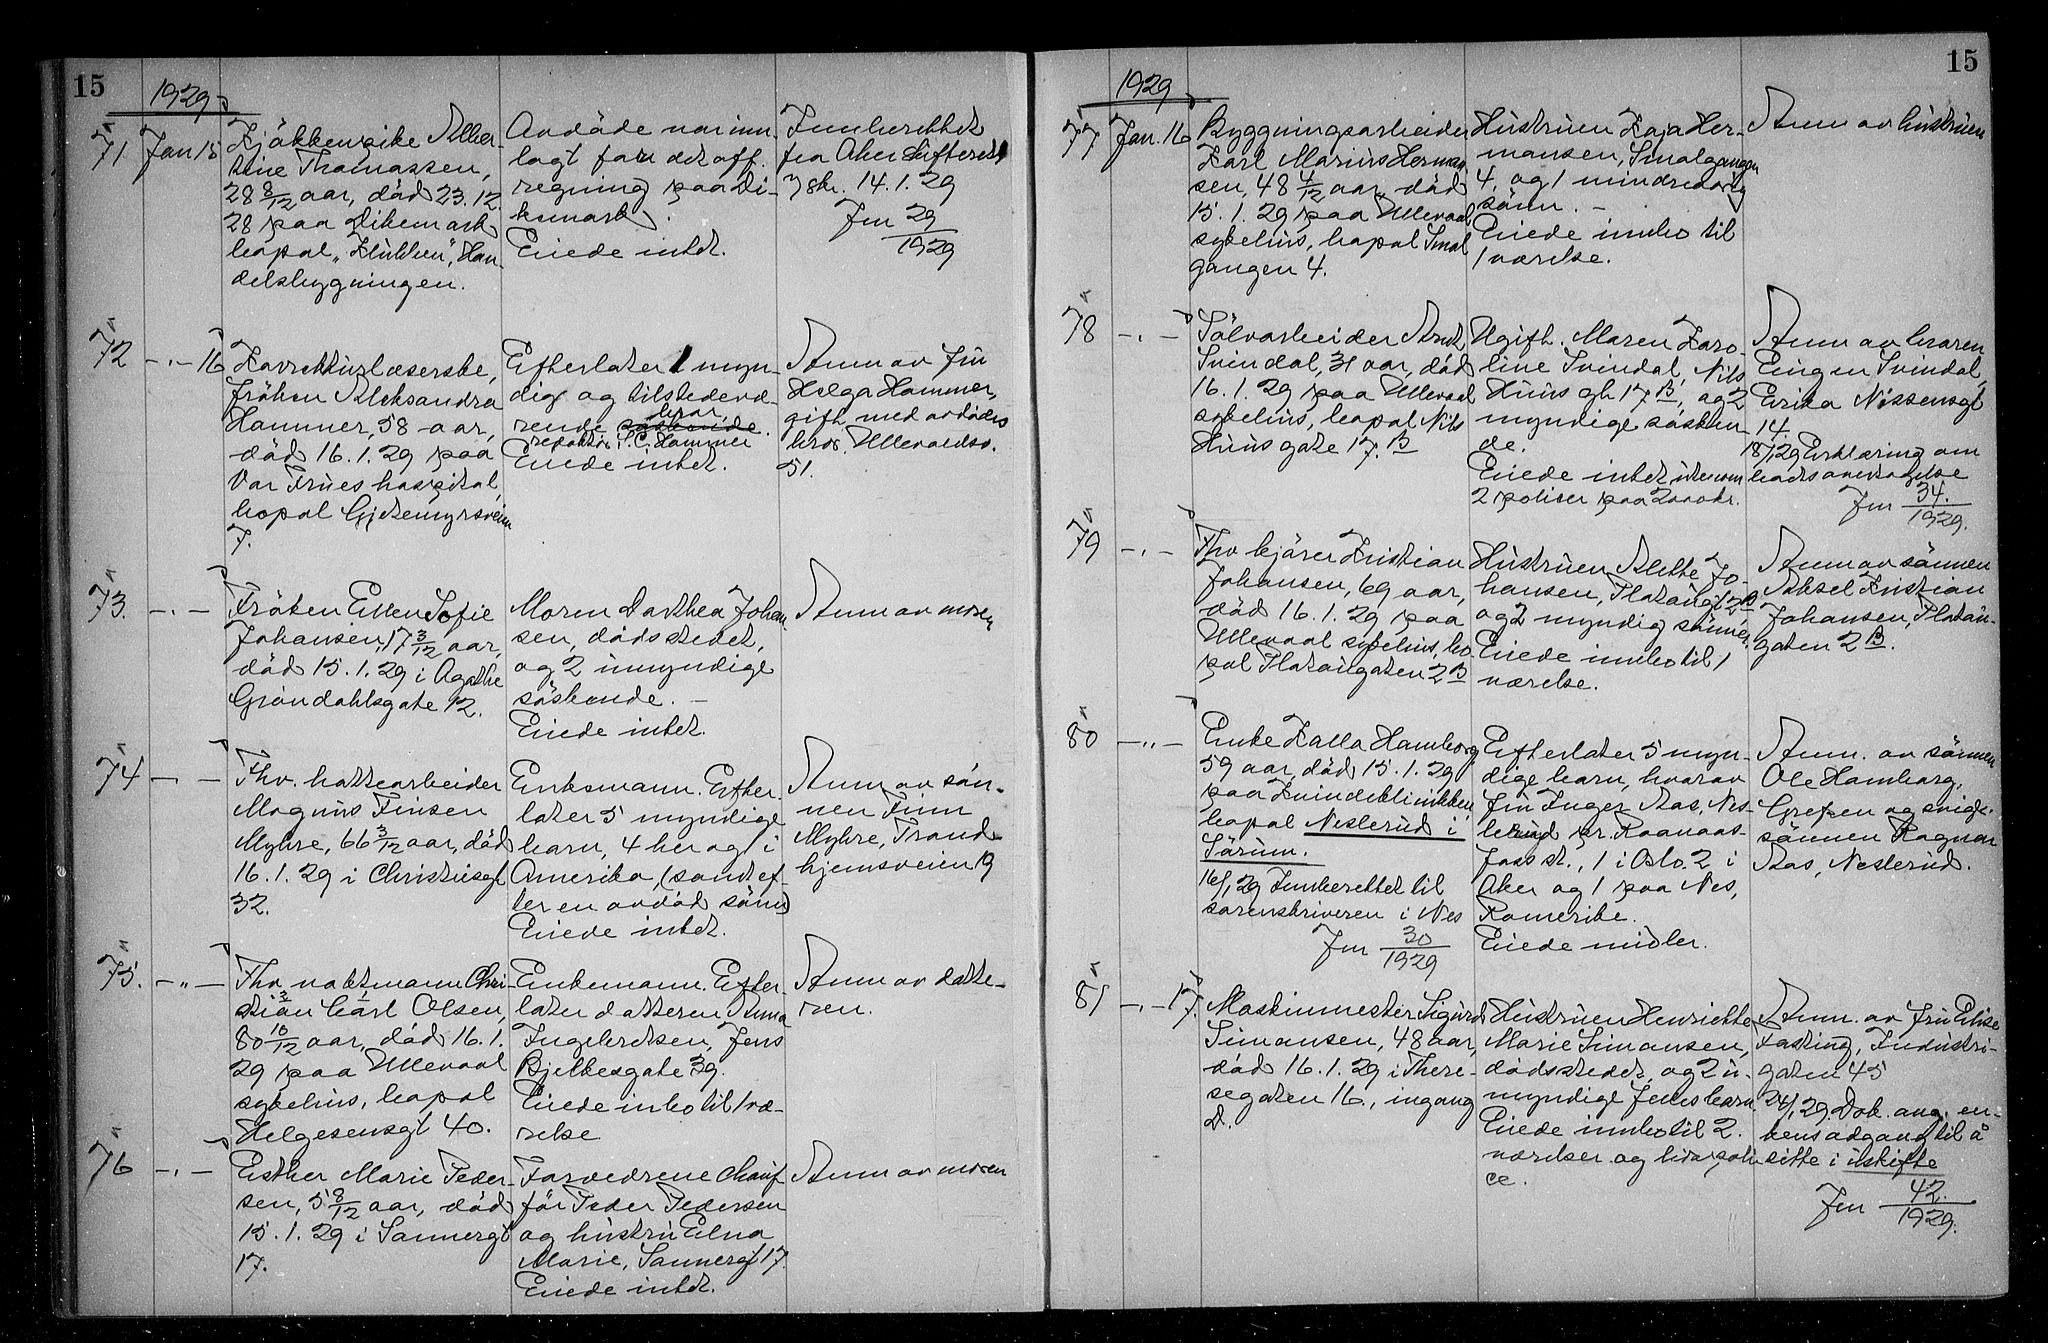 15
1929
71 Jan 15
Kjökkenpike Alber-
tine Thomassen,
28 8/12 aar, död 23.12.
28 paa Dikemark
bopal „Klubben", Han-
delsbygningen.
Avdöde var inn-
lagt for det off.
regning paa Di-
kemark.
Eiede intet.
Innberettet
fra Aker skifterett
i skr. 14.1.29
Jnr 29/1929
72 -"- 16
Korrekturlæserske,
fröken Aleksandra
Hammer, 58 aar,
död 16.1.29 paa
Vor Frues hospital,
bopal Gjetemyrsveien
7.
Efterlater 1 myn-
dig og tilstedevæ-
rende söskende. bror,
redaktör S.C. Hammer
Eiede intet.
Anm av fru
Helga Hammer,
gift med avdödes
bror. Ullevaalsv.
51.
73. -"-
Fröken Ellen Sofie
Johansen, 17 3/12 aar,
död 15.1.29 i Agathe
Gröndahlsgate 12.
Moren Dorthea Johan
sen, dödsstedet,
og 2 umyndige
söskende. -
Eiede intet.
Anm av moren
74 -"-
Fhv. hattearbeider
Magnus Finsen
Myhre, 66 3/12 aar, död
16.1.29 i Christiesgt
32.
Enkemann. Efter-
later 5 myndige
barn, 4 her og 1 i
Amerika, (samt ef-
ter en avdød sönn)
Eiede intet.
Anm av sön-
nen Finn
Myhre, Trond-
hjemsveien 19
75. -"-
Fhv. vaktmann Chri-
stian Carl Olsen,
80 10/12 aar, död 16.1.
29 paa Ullevaal
sykehus, bopal
Helgesensgt 40.
Enkemann. Efter-
later datteren Anna
Ingebretsen, Jens
Bjelkesgate 39.
Eiede inbo til 1 væ-
relse
Anm av datte-
ren.
76 -"-
Esther Marie Peder-
sen, 5 8/12 aar, död
15.1.29 i Sannergt
17.
Forældrene Chauf
för Peder Pedersen
og hustru Elna
Marie, Sannergt 17.
Eiede intet.
Anm av moren
15
1929
77 Jan. 16
Byggningsarbeider
Karl Marius Herman
sen, 48 4/12 aar, död
15.1.29 paa Ullevaal
sykehus, bopal Smal
gangen 4.
Hustruen Kaja Her-
mansen, Smalgangen
4, og 1 mindreårig
sönn. -
Eiede innbo til
1 værelse.
Anm av hustruen
78 -"-
Sölvarbeider Arnt
Svindal, 31 aar, död
16.1.29 paa Ullevaal
sykehus, bopal Nils
Huus gate 17. B
Ugift. Moren Karo-
line Svindal, Nils
Huus gt 17 B, og 2
myndige sösken-
de.
Eiede intet utenom
2 poliser paa 2000 kr.
Anm av broren
Eingen Svindal,
Erika Nissensgt
14.
18/1 29 Erklæring om
boets overtagelse
Jnr 34./1929.
79 -"-
Fhv kjörer Kristian
Johansen, 69 aar,
död 16.1.29 paa
Ullevaal sykehus, bo
pal Platougaten 2 B
Hustruen Alette Jo-
hansen, Platougt 2 B
og 2 myndig sönner.
Eiede innbo til 1
værelse.
Anm av sönnen
Aksel Kristian
Johansen, Platou-
gaten 2 B.
80 -"-
Enke Kalla Hamborg
59 aar, död 15.1.29
paa Kvindeklinikken
bopal Neslerud i
Sörum.
16/1 29 Innberettet til
sorenskriveren i Nes
Jnr 30/1929
Efterlater 5 myn-
dige barn, hvorav
fru Inger Aas, Nes-
lerud pr. Raanaas-
foss st., 1 i Oslo, 2 i
Aker og 1 paa Nes,
Romerike.
Eiede midler.
Anm. av sönnen
Ole Hamborg,
Grefsen og svige-
sönnen Ragnar
Aas, Neslerud.
81 -"- 17.
Maskinmester Sigurd
Simonsen, 48 aar,
död 16.1.29 i There-
segaten 16, ingang
D.
Hustruen Henriette
Marie Simonsen,
dödsstedet, og 2 u-
myndige felles barn
Eiede innbo til 2.
værelser og livspoli
ce.
Anm. av fru Elise
Fasting, Industri-
gaten 45
24/1 29. Dok. ang. en-
kens adgang til å
sitte i uskifte
Jnr 42./1929.